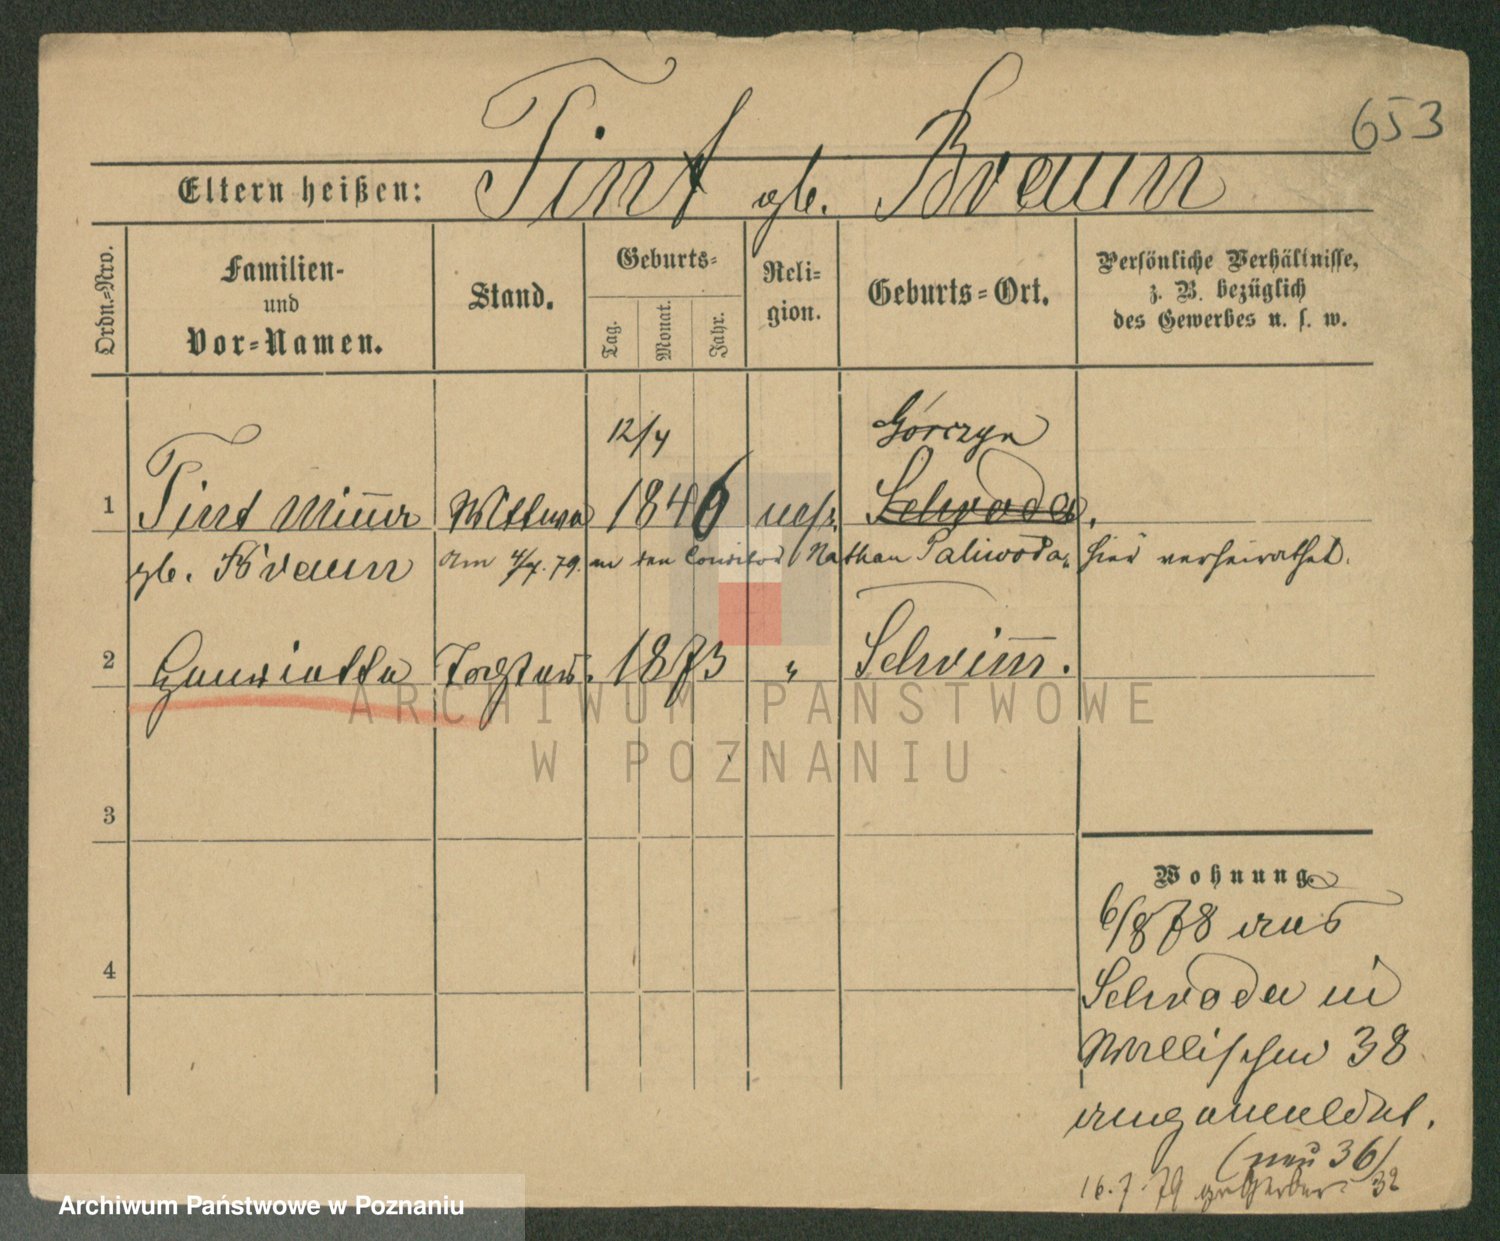 653
Eltern heißen: Tint gb. Braun
Ordn.-Nro.
Familien-
und
Vor-Namen.
Stand.
Geburts-
Tag.
Monat.
Jahr.
Reli-
gion.
Geburts-Ort.
Persönliche Verhältnisse,
z. B. bezüglich
des Gewerbes u. s. w.
12/4 Górczyn
1 Tint Minna Wittwe 1846 mos. Schroda.
gb. Braun am 4/7. 79. an den Conditor Nathan Paliwoda, hier verheirathet.
2 Henriette Tochter. 1873 " Schrimm.
3
4
Wohnung
6/8 78 aus
Schroda in
Wallischei 38
angemeldet.
(neu 36)
16.7.79 Gerber. 32
ARCHIWUM PAŃSTWOWE
W POZNANIU
Archiwum Państwowe w Poznaniu